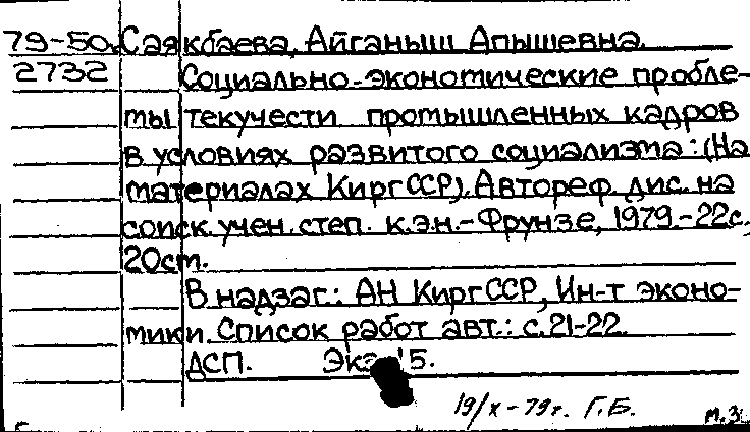 79-50. Саякбаева, Айганыш Апышевна.
2732 Социально-экономические пробле-
мы текучести промышленных кадров
в условиях развитого социализма: (На
материалах Кирг ССР). Автореф. дис. на
соиск. учен. степ. к.э.н.-Фрунзе, 1979.-22с.,
20см.
В надзаг.: АН Кирг ССР, Ин-т эконо-
мики. Список работ авт.: с.21-22.
ДСП. 5.
19/X-79г. Г.Б.